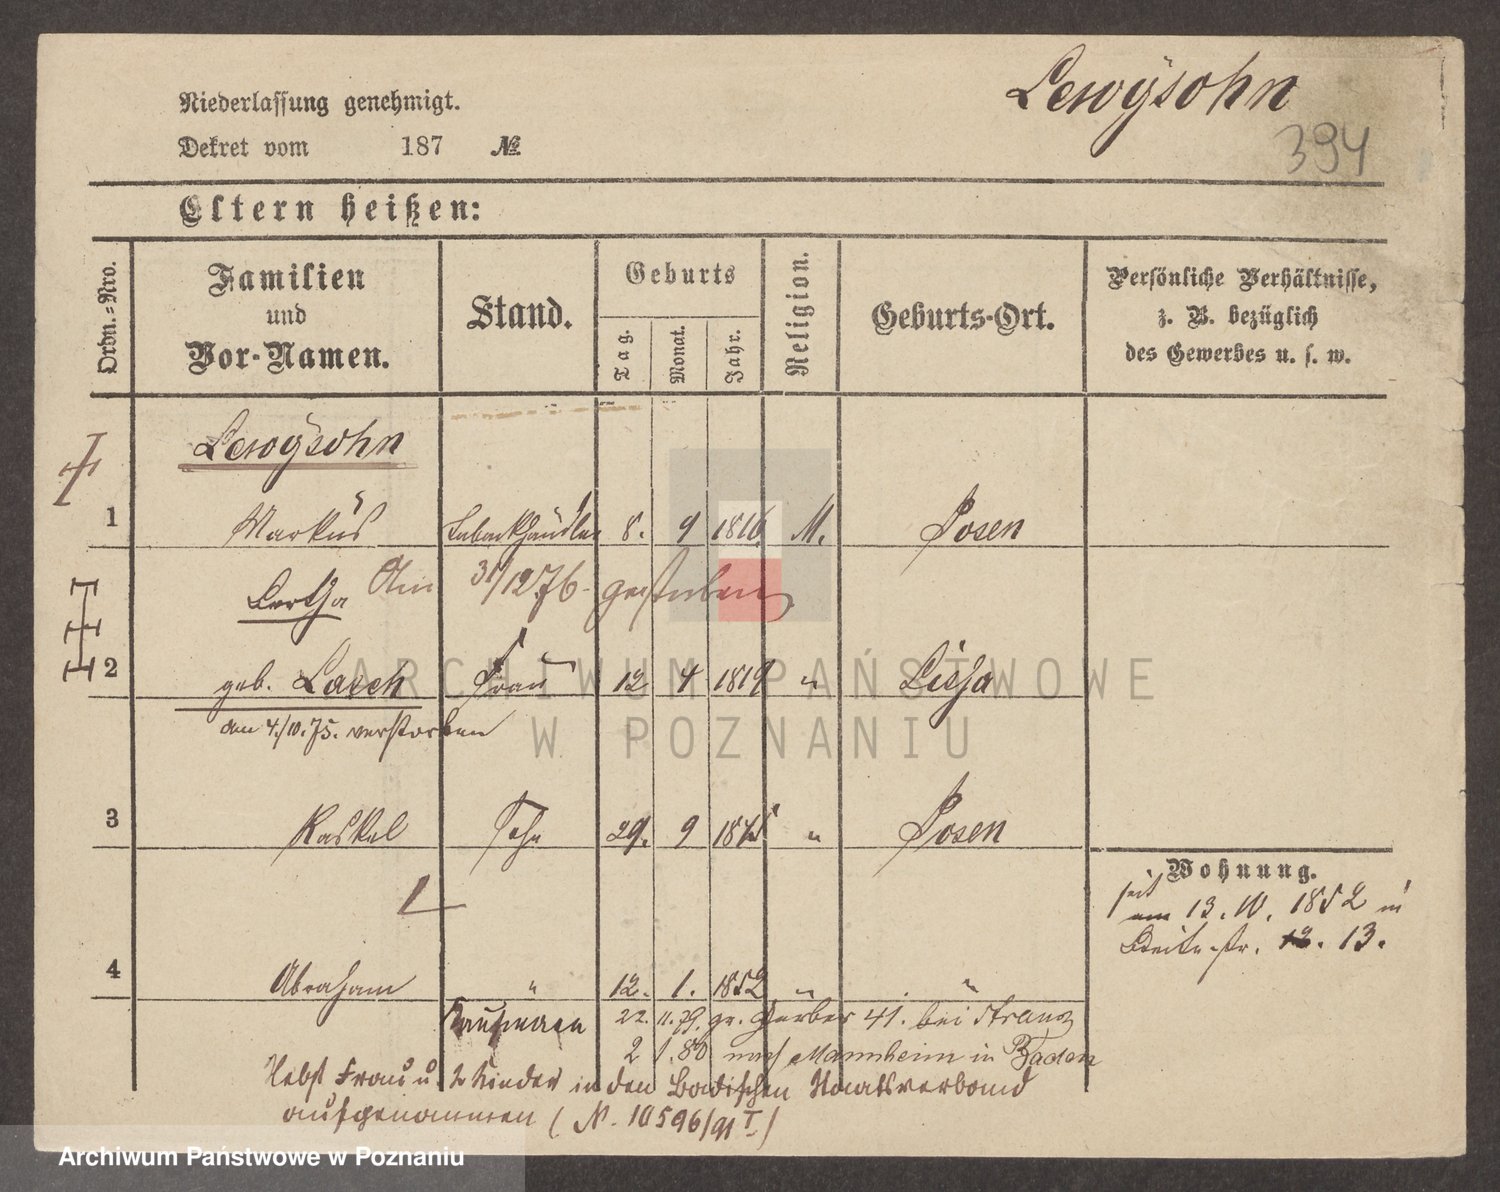 Niederlassung genehmigt.
Lewÿsohn
Dekret vom 187 №
394
Eltern heißen:
Ordn.-Nro.
Familien
und
Vor-Namen.
Stand.
Geburts
Tag.
Monat.
Jahr.
Religion.
Geburts-Ort.
Persönliche Verhältnisse,
z. B. bezüglich
des Gewerbes u. s. w.
Lewÿsohn
1 Markus Tabakhändler 8. 9 1816 M. Posen
Bertha Am 31/12 76. gestorben
2 geb. Lasch Frau 12 4 1819 " Lissa
am 4./10. 75. verstorben
3 Kaskel Sohn 29. 9 1845 " Posen
Wohnung.
seit
am 13. IV. 1852 in
Breite-str. 12. 13.
4 Abraham " 12. 1. 1852 " "
Kaufmann 22. 11. 79. gr. Gerber 41. bei Kranz
2 1. 80 nach Mannheim in Baden
Nebst Frau u. 2 Kinder in den Badischen Staatsverband
aufgenommen (N. 10596/91 I.)
ARCHIWUM PAŃSTWOWE
W POZNANIU
Archiwum Państwowe w Poznaniu